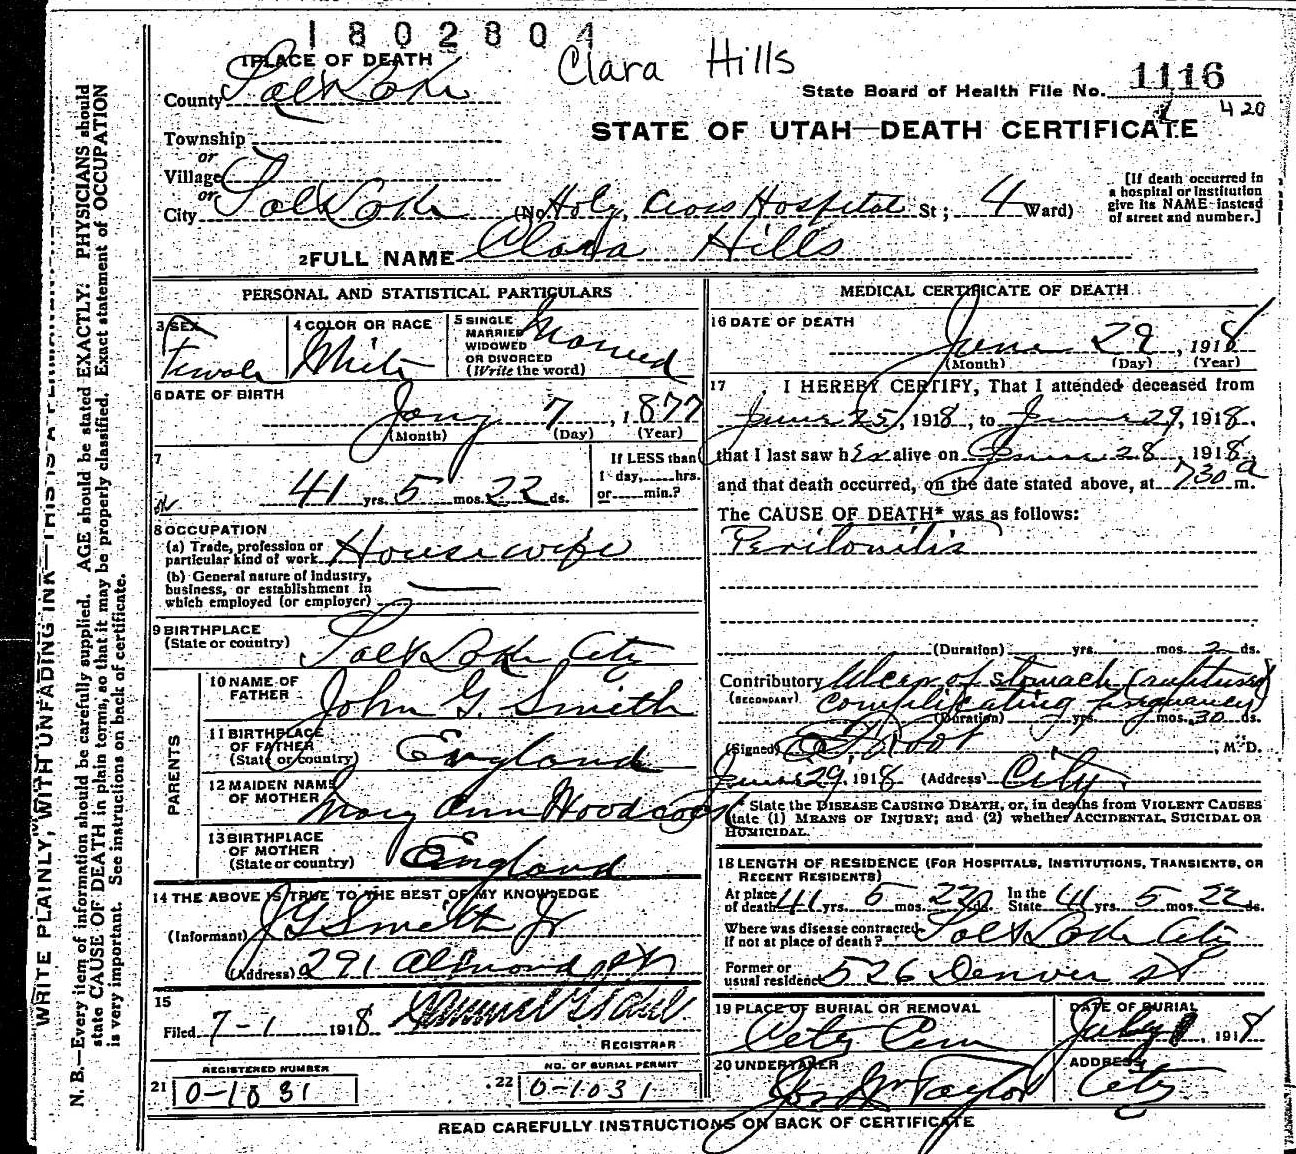 1802804
Clara Hills
1 PLACE OF DEATH
County Salt Lake
State Board of Health File No. 1116
420
STATE OF UTAH—DEATH CERTIFICATE
Township
or
Village
or
City Salt Lake (No. Holy Cross Hospital St; 4 Ward)
[If death occurred in
a hospital or institution
give its NAME instead
of street and number.]
2 FULL NAME Clara Hills
PERSONAL AND STATISTICAL PARTICULARS
3 SEX
Female
4 COLOR OR RACE
White
5 SINGLE
MARRIED
WIDOWED
OR DIVORCED
(Write the word)
Married
6 DATE OF BIRTH
Jany 7, 1877
(Month) (Day) (Year)
7
41 yrs. 5 mos. 22 ds.
If LESS than
1 day, hrs.
or min.?
8 OCCUPATION
(a) Trade, profession or
particular kind of work Housewife
(b) General nature of industry,
business, or establishment in
which employed (or employer)
9 BIRTHPLACE
(State or country) Salt Lake City
PARENTS
10 NAME OF
FATHER John G. Smith
11 BIRTHPLACE
OF FATHER
(State or country) England
12 MAIDEN NAME
OF MOTHER Mary Ann Woodcock
13 BIRTHPLACE
OF MOTHER
(State or country) England
14 THE ABOVE IS TRUE TO THE BEST OF MY KNOWLEDGE
(Informant) J G Smith Jr
(Address) 291 Almond St
15
Filed 7-1 1918
REGISTRAR
REGISTERED NUMBER
21 0-1031
NO. OF BURIAL PERMIT
22 0-1031
MEDICAL CERTIFICATE OF DEATH
16 DATE OF DEATH
June 29, 1918
(Month) (Day) (Year)
17 I HEREBY CERTIFY, That I attended deceased from
June 25, 1918, to June 29, 1918,
that I last saw her alive on June 28, 1918,
and that death occurred, on the date stated above, at 730 a m.
The CAUSE OF DEATH* was as follows:
Peritonitis
(Duration) yrs. mos. 2 ds.
Contributory Ulcer of stomach (ruptured)
(SECONDARY) complicating pregnancy
(Duration) yrs. mos. 30 ds.
(Signed) Root, M. D.
June 29, 1918 (Address) City
* State the DISEASE CAUSING DEATH, or, in deaths from VIOLENT CAUSES
state (1) MEANS OF INJURY; and (2) whether ACCIDENTAL, SUICIDAL OR
HOMICIDAL.
18 LENGTH OF RESIDENCE (FOR HOSPITALS, INSTITUTIONS, TRANSIENTS, OR
RECENT RESIDENTS)
At place
of death 41 yrs. 5 mos. 22 ds. In the
State 41 yrs. 5 mos. 22 ds.
Where was disease contracted
if not at place of death? Salt Lake City
Former or
usual residence 526 Denver St
19 PLACE OF BURIAL OR REMOVAL
City Cem
DATE OF BURIAL
July 1, 1918
20 UNDERTAKER
Jos Wm Taylor
ADDRESS
City
READ CAREFULLY INSTRUCTIONS ON BACK OF CERTIFICATE
WRITE PLAINLY, WITH UNFADING INK—THIS IS A PERMANENT
N. B.—Every item of information should be carefully supplied. AGE should be stated EXACTLY. PHYSICIANS should
state CAUSE OF DEATH in plain terms, so that it may be properly classified. Exact statement of OCCUPATION
is very important. See instructions on back of certificate.